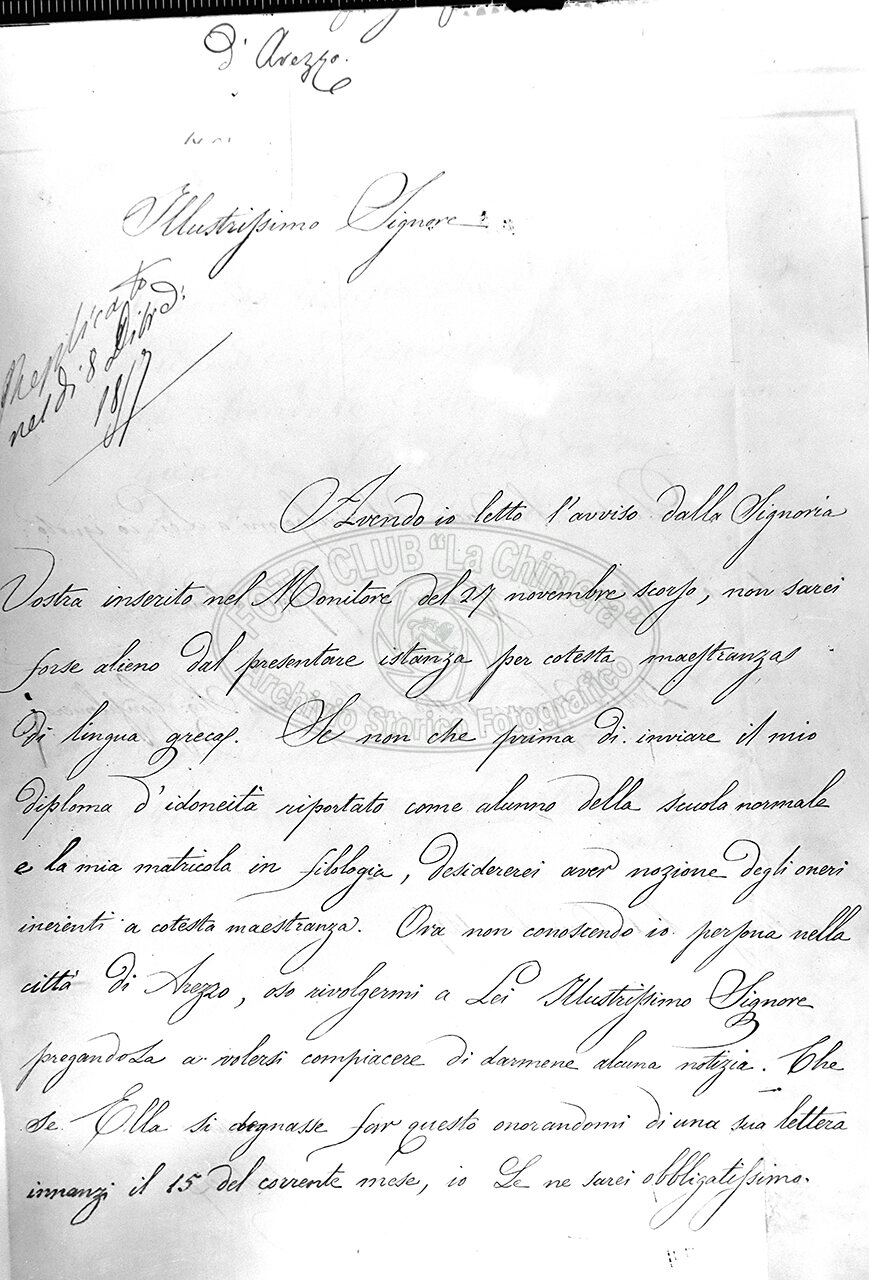 d'Arezzo.
Illustrissimo Signore
Replicato
nel dì 8 Dibre
Avendo io letto l'avviso dalla Signoria
Vostra inserito nel Monitore del 27 novembre scorso, non sarei
forse alieno dal presentare istanza per cotesta maestranza
di lingua greca. Se non che prima di inviare il mio
diploma d'idoneità riportato come alunno della scuola normale
e la mia matricola in filologia, desidererei aver nozione degli oneri
inerenti a cotesta maestranza. Ora non conoscendo io persona nella
città di Arezzo, oso rivolgermi a Lei Illustrissimo Signore
pregandoLa a volersi compiacere di darmene alcuna notizia. Che
se Ella si degnasse far questo onorandomi di una sua lettera
innanzi il 15 del corrente mese, io Le ne sarei obbligatissimo.
FOTO CLUB "La Chimera"
Archivio Storico Fotografico